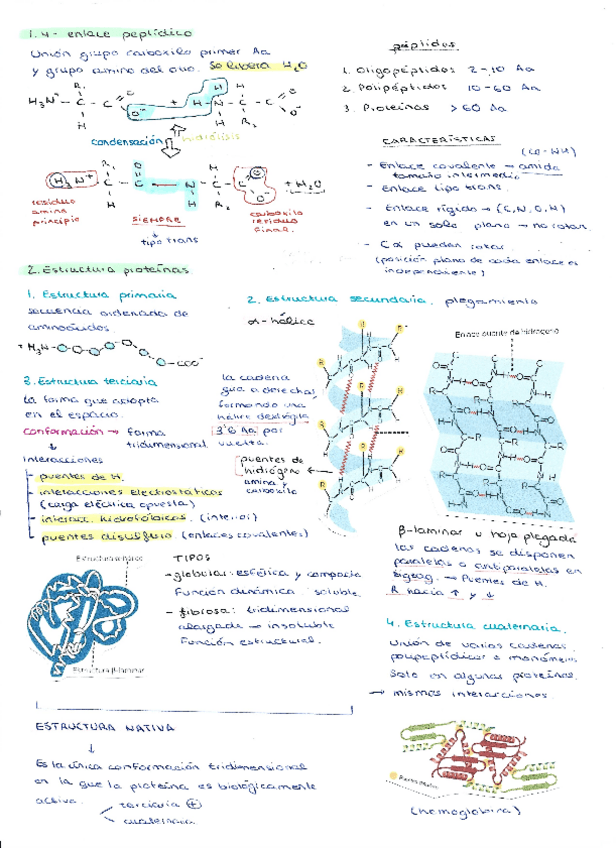 1.4- enlace peptídico
Unión grupo carboxilo primer Aa
y grupo amino del otro. Se libera H2O
H3N+ - C - C
R1
H
O
O-
+
H
H-N - C - C
H
R2
O
O-
condensación
hidrólisis
H3N+ - C - C - N - C - C
R1
O
H
H
R2
O
O-
+ H2O
residuo
amino
principio
SIEMPRE
tipo trans
carboxilo
residuo
final.
péptidos
1. Oligopéptidos 2-10 Aa
2. Polipéptidos 10-60 Aa
3. Proteínas > 60 Aa
CARACTERÍSTICAS
(CO-NH)
- Enlace covalente → amida
tamaño intermedio
- Enlace tipo trans.
- Enlace rígido → (C, N, O, H)
en un solo plano → no rotar.
- Cα pueden rotar.
(posición plano de cada enlace es
independiente)
2. Estructura proteínas
1. Estructura primaria
secuencia ordenada de
aminoácidos.
+H3N-
-COO-
2. Estructura secundaria. plegamiento
α-hélice
la cadena
gira a derechas,
formando una
hélice dextrógira
3'6 Aa por
vuelta.
puentes de
hidrógeno
amina y
carboxilo
Enlace puente de hidrógeno
β-laminar u hoja plegada
las cadenas se disponen
paralelas o antiparalelas en
zigzag. → Puentes de H.
R hacia ↑ y ↓
3. Estructura terciaria
la forma que adopta
en el espacio.
conformación → forma
tridimensional
Interacciones
- puentes de H.
- interacciones electrostáticas
(carga eléctrica opuesta)
- interacc. hidrofóbicas. (interior)
- puentes disulfuro. (enlaces covalentes)
Estructura β-laminar
TIPOS
- globular: esférica y compacta
Función dinámica soluble.
- fibrosa: tridimensional
alargada → insoluble
Función estructural.
4. Estructura cuaternaria.
Unión de varias cadenas
polipeptídicas o monómeros
Solo en algunas proteínas.
→ mismas interacciones.
(hemoglobina)
ESTRUCTURA NATIVA
↓
Es la única conformación tridimensional
en la que la proteína es biológicamente
activa.
terciaria +
cuaternaria